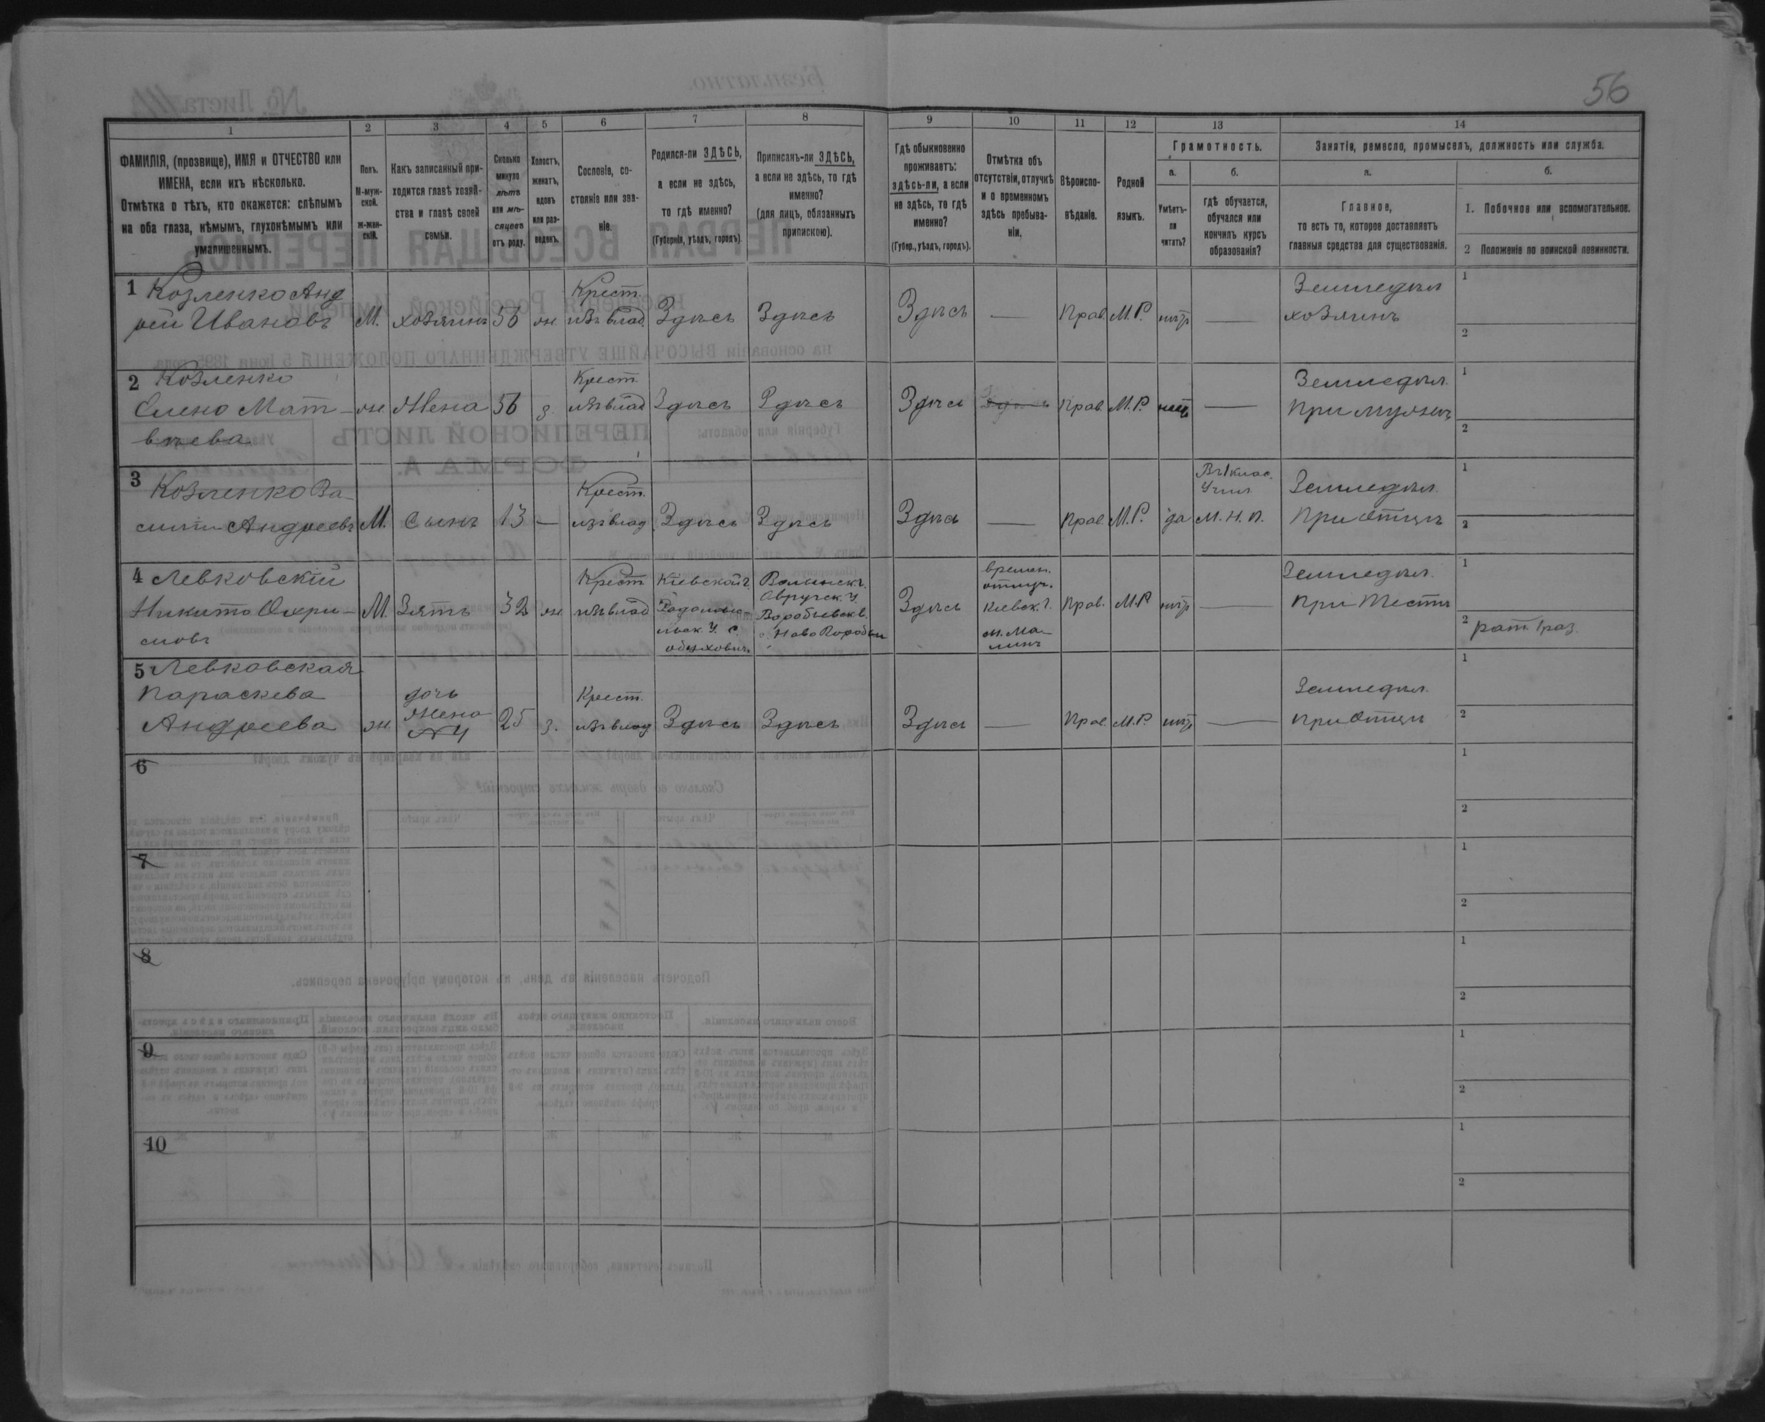 56
1
2
3
4
5
6
7
8
9
10
11
12
13
14
ФАМИЛІЯ, (прозвище), ИМЯ и ОТЧЕСТВО или
ИМЕНА, если ихъ нѣсколько.
Отмѣтка о тѣхъ, кто окажется: слѣпымъ
на оба глаза, нѣмымъ, глухонѣмымъ или
умалишеннымъ.
Полъ.
М-муж-
ской.
ж-жен-
скій.
Какъ записанный при-
ходится главѣ хозяй-
ства и главѣ своей
семьи.
Сколько
минуло
лѣтъ
или мѣ-
сяцевъ
отъ роду.
Холостъ,
женатъ,
вдовъ
или раз-
веденъ.
Сословіе, со-
стояніе или зва-
ніе.
Родился-ли ЗДѢСЬ,
а если не здѣсь,
то гдѣ именно?
(Губернія, уѣздъ, городъ).
Приписанъ-ли ЗДѢСЬ,
а если не здѣсь, то гдѣ
именно?
(для лицъ, обязанныхъ
припискою).
Гдѣ обыкновенно
проживаетъ:
здѣсь-ли, а если
не здѣсь, то гдѣ
именно?
(Губер., уѣздъ, городъ).
Отмѣтка объ
отсутствіи, отлучкѣ
и о временномъ
здѣсь пребыва-
ніи.
Вѣроиспо-
вѣданіе.
Родной
языкъ.
Грамотность.
а.
Умѣетъ-
ли
читать?
б.
гдѣ обучается,
обучался или
кончилъ курсъ
образованія?
Занятіе, ремесло, промыселъ, должность или служба.
а.
Главное,
то есть то, которое доставляетъ
главныя средства для существованія.
б.
1. Побочное или вспомогательное.
2 Положеніе по воинской повинности.
1 Козленко Анд
рей Ивановъ М. хозяинъ 56 ж Крест. изъ влад. Здѣсь Здѣсь Здѣсь — Прав. М.Р. нѣтъ — Земледѣл. хозяинъ 1 2
2 Козленко
Елена Мат-
вѣева ж Жена 56 з. Крест. изъ влад. Здѣсь Здѣсь Здѣсь Прав. М.Р. нѣтъ — Земледѣл. При мужѣ 1 2
3 Козленко Ва-
силій Андреевъ М. сынъ 13 — Крест. изъ влад Здѣсь Здѣсь Здѣсь — Прав. М.Р. да Въ 1 клас. Учил. М.Н.П. Земледѣл. При Отцѣ 1 2
4 Левковскій
Никита Охри-
мовъ М. Зять 32 ж Крест изъ влад Кіевской г.
Радомыс-
льск. У. с. Волынск. г.
Овручск. У
Воробьевск. в.
с. Ново Воробьи Здѣсь времен.
отлуч.
Кіевск. г.
м. Ма-
линъ Прав. М.Р нѣтъ Земледѣл. При Тестѣ 1 2 рат. 1 раз.
5 Левковская
Параскева
Андреева ж дочь
Жена
№ 4 25 з. Крест. изъ влад Здѣсь Здѣсь Здѣсь — Прав М.Р. нѣтъ — Земледѣл. При Отцѣ 1 2
6 1 2
7 1 2
8 1 2
9 1 2
10 1 2